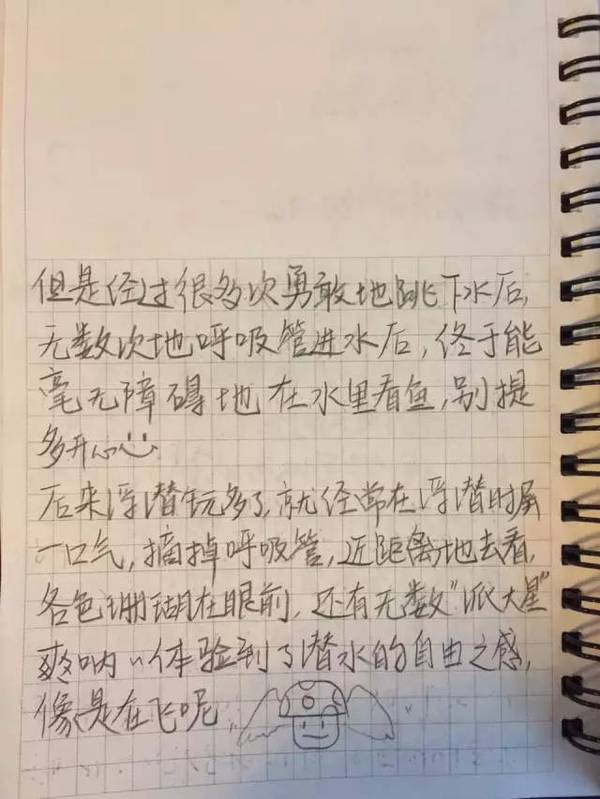 但是经过很多次勇敢地跳下水后,
无数次地呼吸管进水后,终于能
毫无障碍地在水里看鱼,别提
多开心
后来浮潜玩多了,就经常在浮潜时屏
一口气,摘掉呼吸管,近距离地去看,
各色珊瑚在眼前,还有无数“派大星”
爽呐“体验到了潜水的自由之感,
像是在飞呢